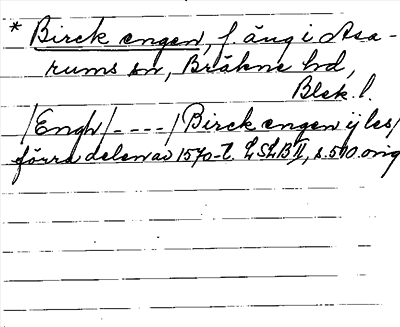 * Birck engen, f. äng i Asa-
rums sn, Bräkne hd,
Blek. l.
/Engh/----/Birck engen ij les/
förra delen av 1570-t. LSLB II, s. 510 orig